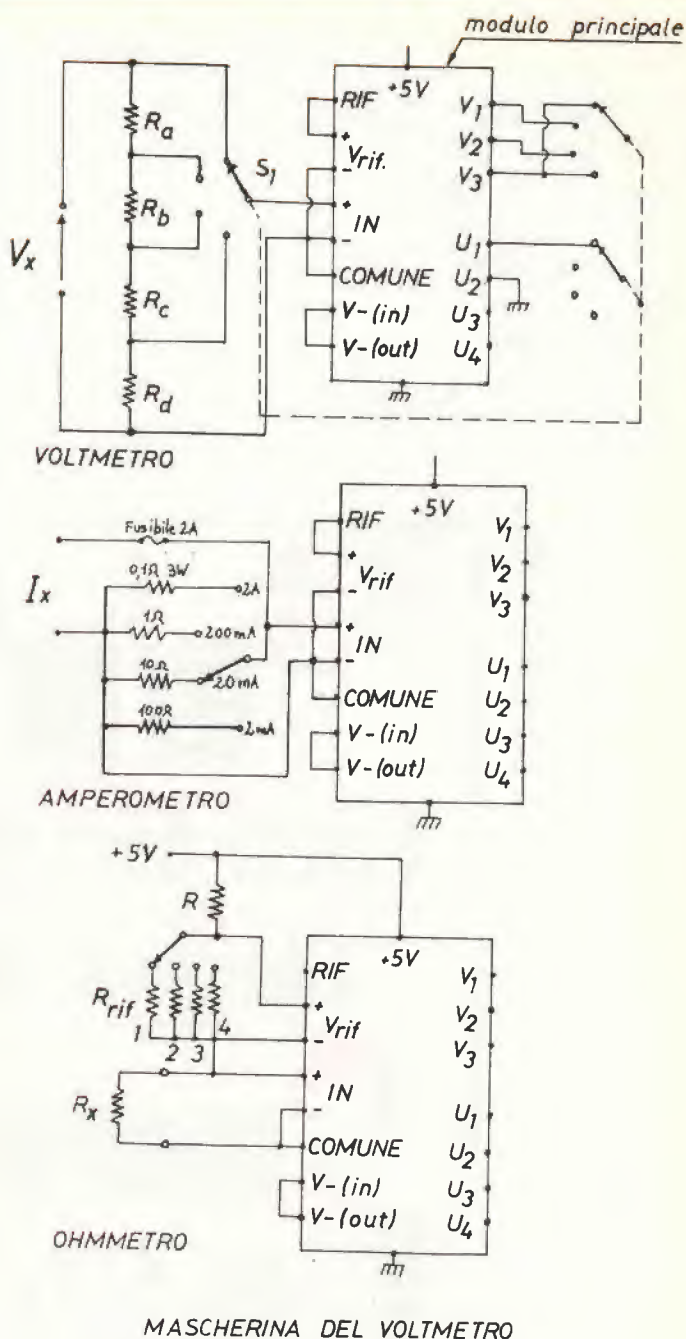 modulo principale
+5V
RIF
+
Vrif.
-
+
IN
-
COMUNE
V-(in)
V-(out)
V1
V2
V3
U1
U2
U3
U4
Ra
Rb
Rc
Rd
S1
Vx
VOLTMETRO
Fusibile 2A
0,1Ω 3W
2A
1Ω
200mA
10Ω
20mA
100Ω
2mA
Ix
+5V
RIF
+
Vrif
-
+
IN
-
COMUNE
V-(in)
V-(out)
V1
V2
V3
U1
U2
U3
U4
AMPEROMETRO
+5V
R
Rrif
1
2
3
4
Rx
+5V
RIF
+
Vrif
-
+
IN
-
COMUNE
V-(in)
V-(out)
V1
V2
V3
U1
U2
U3
U4
OHMMETRO
MASCHERINA DEL VOLTMETRO